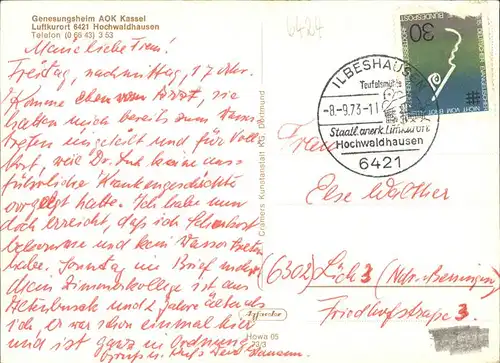 Genesungsheim AOK Kassel
Luftkurort 6421 Hochwaldhausen
Telefon (0 66 43) 3 53
Meine liebe Frau!
Freitag, nachmittag, 17 Uhr.
Komme eben vom Arzt, sie
hatten mich bereits zum Wasser
treten eingeteilt und für Voll
kost, weil Dr. keine aus-
führliche Krankengeschichte
vorgelegt hatte. Ich habe nun
doch erreicht, daß ich Schonkost
bekomme und kein Wassertreten
habe. Sonntag im Brief mehr.
Mein Zimmerkollege ist aus
Altenbuseck und 2 Jahre älter als
ich, er war schon einmal hier
und ist ganz in Ordnung.
Gruß u. Kuß
Cramers Kunstanstalt KG Dortmund
6424
ILBESHAUSEN
Teufelsmühle
-8.-9.73-11
Staatl. anerk. Luftkurort
Hochwaldhausen
6421
30
DEUTSCHE BUNDESPOST
Frau
Else Walther
(6302) Lich 3
Friedhofstraße 3
Howa 05